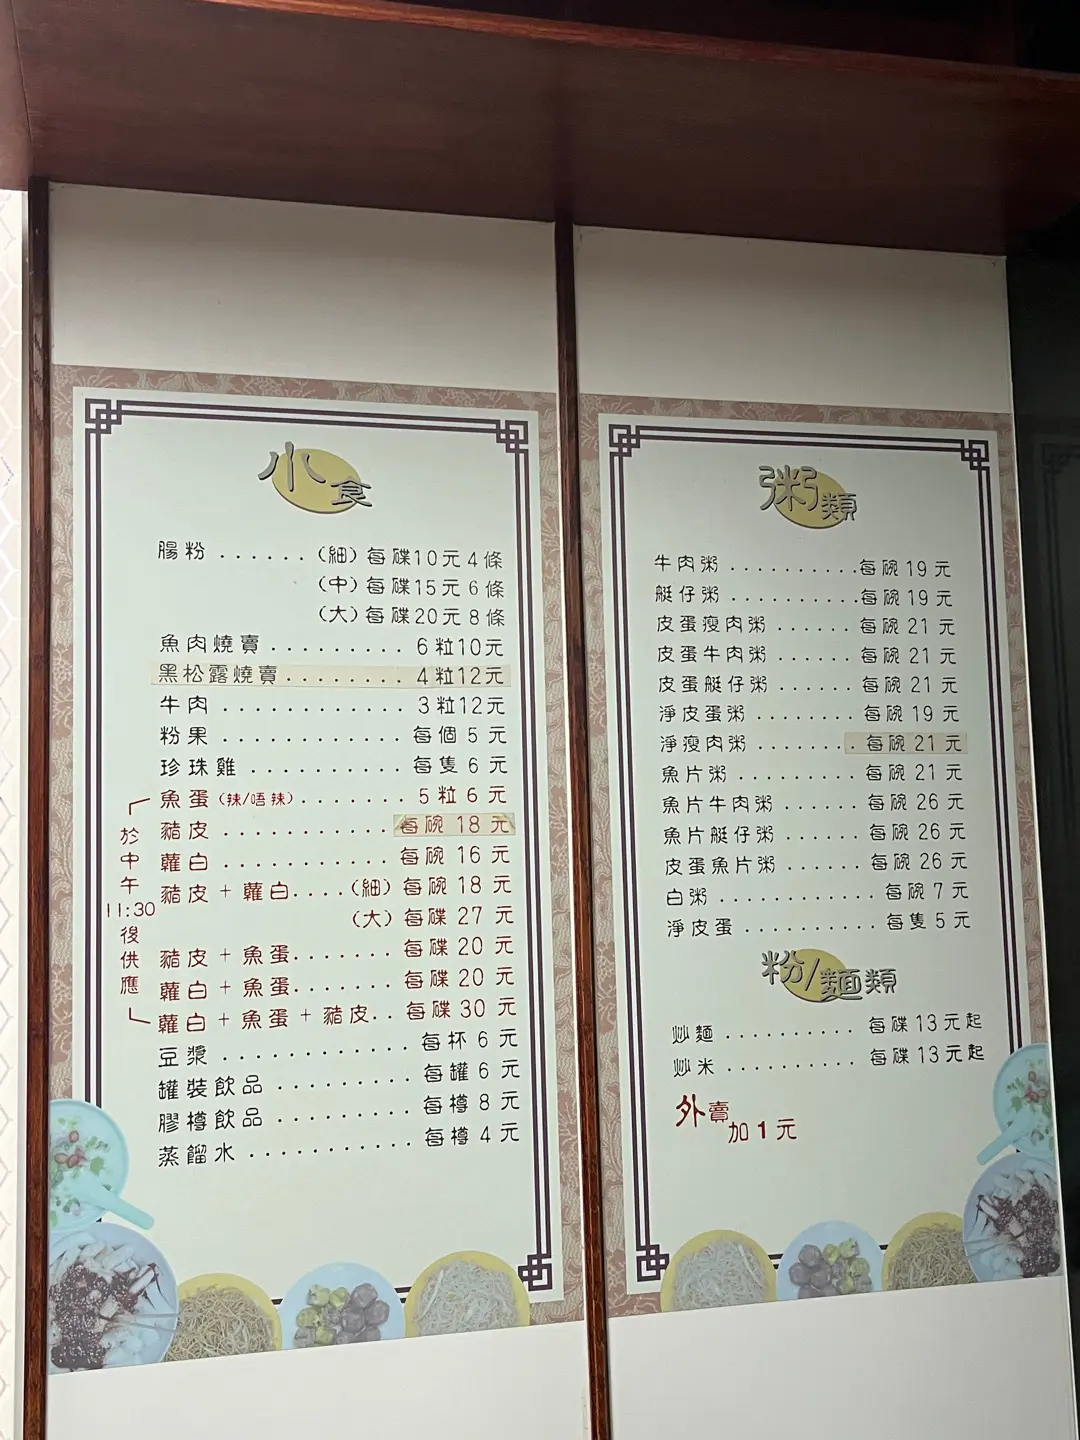 小食
腸粉......(細)每碟10元4條
(中)每碟15元6條
(大)每碟20元8條
魚肉燒賣..........6粒10元
黑松露燒賣.........4粒12元
牛肉.............3粒12元
粉果.............每個5元
珍珠雞...........每隻6元
魚蛋(辣/唔辣)........5粒6元
豬皮............每碗18元
蘿白............每碗16元
豬皮+蘿白....(細)每碗18元
(大)每碟27元
豬皮+魚蛋.......每碟20元
蘿白+魚蛋.......每碟20元
蘿白+魚蛋+豬皮..每碟30元
於中午11:30後供應
豆漿.............每杯6元
罐裝飲品.........每罐6元
膠樽飲品.........每樽8元
蒸餾水...........每樽4元
粥類
牛肉粥..........每碗19元
艇仔粥..........每碗19元
皮蛋瘦肉粥......每碗21元
皮蛋牛肉粥......每碗21元
皮蛋艇仔粥......每碗21元
淨皮蛋粥........每碗19元
淨瘦肉粥........每碗21元
魚片粥.........每碗21元
魚片牛肉粥......每碗26元
魚片艇仔粥......每碗26元
皮蛋魚片粥......每碗26元
白粥...........每碗7元
淨皮蛋..........每隻5元
粉/麵類
炒麵.........每碟13元起
炒米.........每碟13元起
外賣加1元